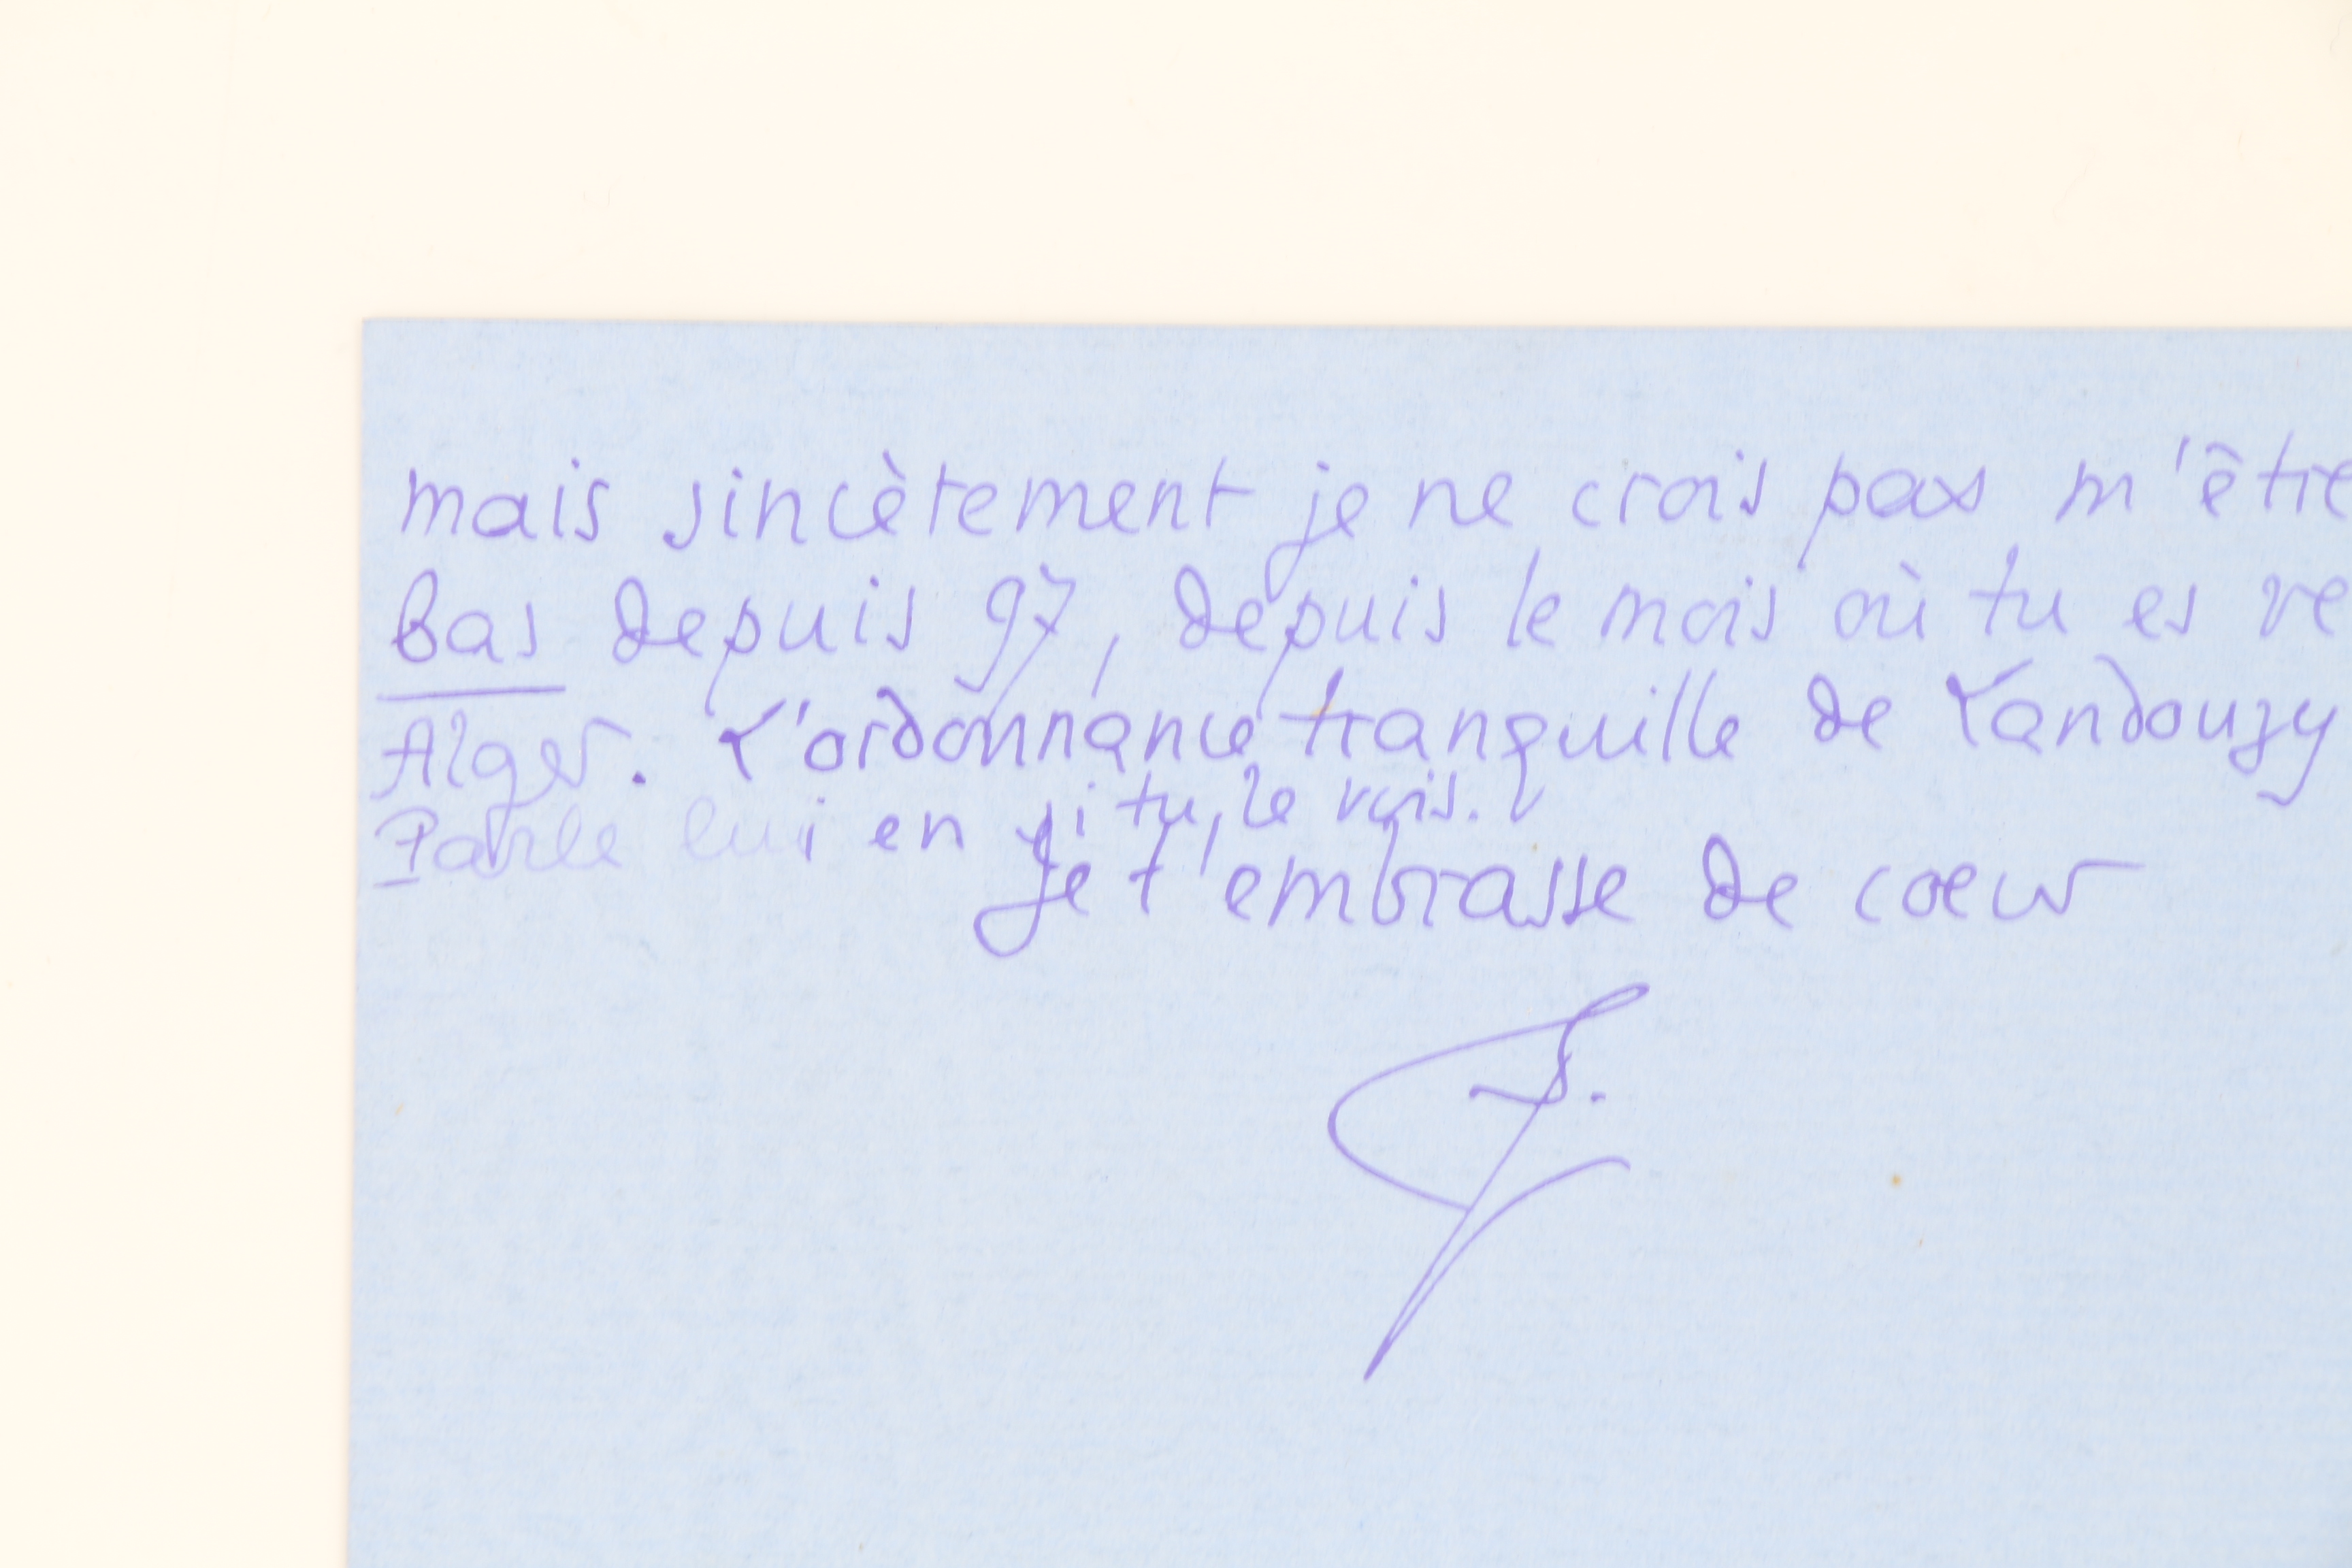 mais sincèrement je ne crois pas m'être
bas depuis 97, depuis le mois où tu es ve
Alger. L'ordonnance tranquille de Landouzy
Parle lui en si tu le vois.
Je t'embrasse de coeur